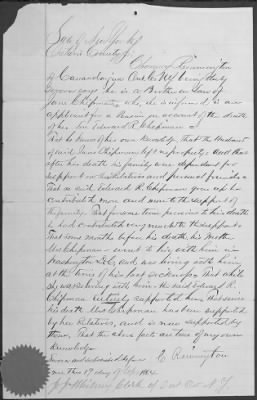 State of New York
Ontario County ss
Edward Rennington
of Canandaigua Ont Co NY being duly
sworn says he is a Brother in law of
Jane Chipman, who, he is informed, is an
applicant for a Pension on account of the death
of her Son Edward R. Chipman
That he knows of his own knowledge, that the Husband
of said Jane Chipman left no property and that
after his death his family were dependent for
support on their relatives and personal friends
That as said Edward R. Chipman grew up he
contributed more and more to the support of
the family. That for some time previous to his death
he had contributed very much to the support
That some months before his death, his Mother
Mrs Chipman went to live with him in
Washington D.C. and was living with him,
at the time of his last sickness. That while
she was living with him he said Edward R.
Chipman entirely supported her, that since
his death Mrs Chipman has been supported
by her Relatives, and is now supported by
them, That the above facts are true of my own
Knowledge
Sworn and subscribed before E. Rennington
me this 17 day of 1864
Clerk of Ont Co N.Y.